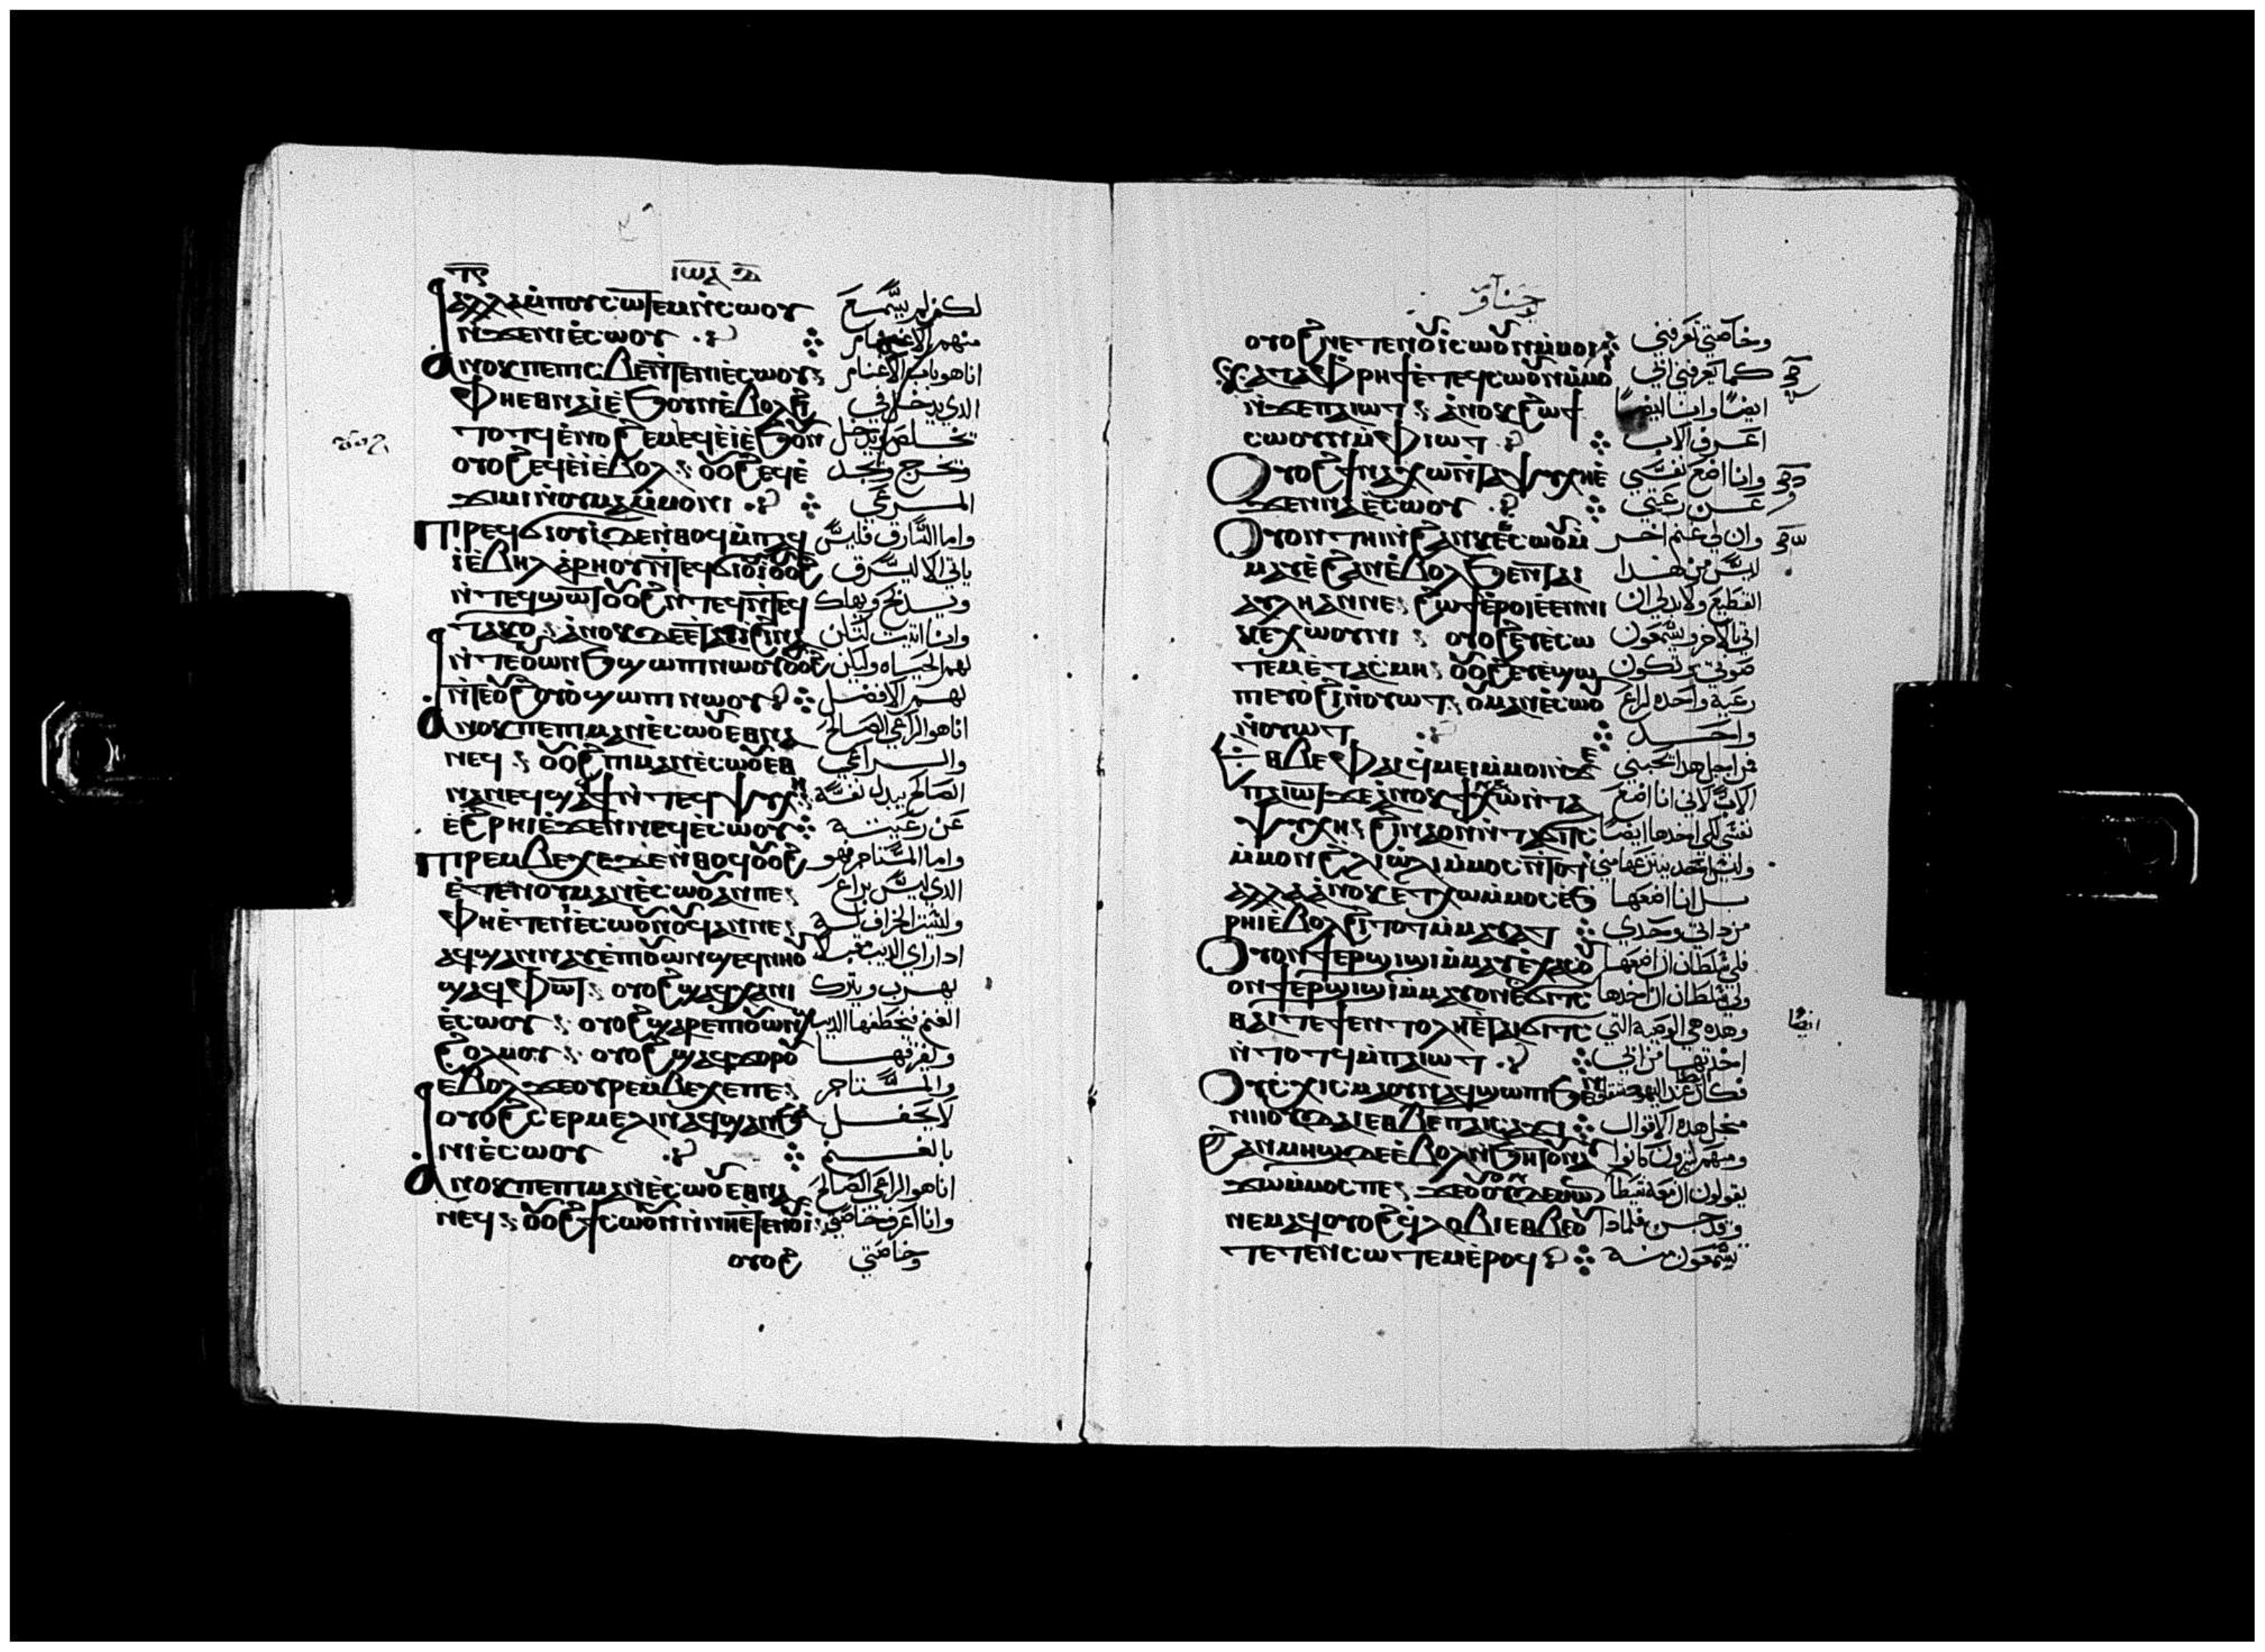 ⲓⲱⲁ
ⲁⲗⲗⲁ ⲙ̀ⲡⲟⲩⲥⲱⲧⲉⲙ ⲛ̀ⲥⲱⲟⲩ لكن لم يسمع
ⲛ̀ϫⲉⲛⲓⲉ̀ⲥⲱⲟⲩ منهم الاغنام
ⲁⲛⲟⲕ ⲡⲉ ⲡⲓⲥⲃⲉ ⲛ̀ⲧⲉⲛⲓⲉ̀ⲥⲱⲟⲩ انا هو باب الاغنام
ⲫⲏⲉⲑⲛⲁⲓ̀ ⲉ̀ϧⲟⲩⲛ ⲉ̀ⲃⲟⲗϩⲓ الدي يدخل في
ⲧⲟⲧϥ ⲉ̀ⲛⲟϩⲉⲙ ⲉϥⲉ̀ⲓ̀ ⲉ̀ϧⲟⲩⲛ يخلص ويدخل
ⲟⲩⲟϩ ⲉϥⲉ̀ⲓ̀ ⲉ̀ⲃⲟⲗ ⲟⲩⲟϩ ⲉϥⲉ̀ ويخرج ويجد
ϫⲓⲙⲓ ⲛ̀ⲟⲩⲙⲁⲙ̀ⲙⲟⲛⲓ المرعي
ⲡⲓⲣⲉϥϭⲓⲟⲩⲓ̀ ⲇⲉ ⲛ̀ⲑⲟϥ ⲙ̀ⲡⲁϥ واما السارق فليس
ⲓ̀ ⲉ̀ⲃⲏⲗ ⲁ̀ⲣⲏⲟⲩ ⲛ̀ⲧⲉϥϭⲓⲟⲩⲓ̀ ⲟⲩⲟϩ ياتي الا ليسرق
ⲛ̀ⲧⲉϥϣⲱⲧ ⲟⲩⲟϩ ⲛ̀ⲧⲉϥ ويدبح ويهلك
ⲧⲁⲕⲟ ⲁ̀ⲛⲟⲕ ⲇⲉ ⲉ̀ⲧⲁⲓⲓ̀ ϩⲓⲛⲁ وانا اتيت لتكن
ⲛ̀ⲧⲉⲟⲩⲱⲛϧ ϣⲱⲡⲓ ⲛⲱⲟⲩ ⲟⲩⲟϩ لهم الحياه وليكن
ⲛ̀ⲧⲉⲟⲩϩⲟⲩⲟ̀ ϣⲱⲡⲓ ⲛⲱⲟⲩ لهم الافضل
ⲁⲛⲟⲕ ⲡⲉ ⲡⲓⲙⲁⲛⲉ̀ⲥⲱⲟⲩ ⲉⲑⲛⲁ انا هو الراعي الصالح
ⲛⲉϥ ⲟⲩⲟϩ ⲡⲓⲙⲁⲛⲉ̀ⲥⲱⲟⲩ ⲉⲑ والراعي
ⲛⲁⲛⲉϥ ϣⲁϥϯ ⲛ̀ⲧⲉϥⲯⲩⲭⲏ الصالح يبدل نفسه
ⲉ̀ϩⲣⲏⲓ ⲉ̀ϫⲉⲛ ⲛⲉϥⲉ̀ⲥⲱⲟⲩ عن رعيته
ⲡⲓⲣⲉⲙⲃⲉⲭⲉ ⲇⲉ ⲛ̀ⲑⲟϥ ⲟⲩⲟϩ واما المستاجر فهو
ⲉ̀ⲧⲉ ⲛⲟⲩⲙⲁⲛⲉ̀ⲥⲱⲟⲩ ⲁⲛ ⲡⲉ الدي ليس براع
ⲫⲏⲉ̀ⲧⲉ ⲛⲓⲉ̀ⲥⲱⲟⲩ ⲛⲟⲩϥ ⲁⲛ ⲛⲉ وليست الخراف له
ⲁϥϣⲁⲛⲛⲁⲩ ⲉ̀ⲡⲓⲟⲩⲱⲛϣ ⲉϥⲛⲏⲟⲩ ادا راي الديب مقبلا
ϣⲁϥⲫⲱⲧ ⲟⲩⲟϩ ϣⲁϥⲭⲁⲛⲓ يهرب ويترك
ⲉ̀ⲥⲱⲟⲩ ⲟⲩⲟϩ ϣⲁⲣⲉ ⲡⲓⲟⲩⲱⲛϣ الغنم فيخطفها الديب
ϩⲟⲗⲙⲟⲩ ⲟⲩⲟϩ ϣⲁϥϫⲟⲣⲟⲩ ويفرقها
ⲉⲃⲟⲗ ϫⲉ ⲟⲩⲣⲉⲙⲃⲉⲭⲉ ⲡⲉ والمستاجر
ⲟⲩⲟϩ ⲥⲉⲣⲙⲉⲗⲓⲛ ⲁϥ ⲁⲛ ϧⲁ لا يحفل
ⲛⲓⲉ̀ⲥⲱⲟⲩ بالغنم
ⲁⲛⲟⲕ ⲡⲉ ⲡⲓⲙⲁⲛⲉ̀ⲥⲱⲟⲩ ⲉⲑⲛⲁ انا هو الراعي الصالح
ⲛⲉϥ ⲟⲩⲟϩ ϯⲥⲱⲟⲩⲛ ⲛ̀ⲛⲏⲉ̀ⲧⲉⲛⲟⲩⲓ وانا اعرف خاصتي
ⲟⲩⲟϩ وخاصتي
ⲟⲩⲟϩ ⲛⲉⲧⲉⲛⲟⲩⲓ ⲥⲱⲟⲩⲛ ⲙ̀ⲙⲟⲓ وخاصتي تعرفني
ⲕⲁⲧⲁ ⲫⲣⲏϯ ⲉ̀ⲧⲉϥⲥⲱⲟⲩⲛ ⲙ̀ⲙⲟⲓ كما يعرفني ابي
ⲛ̀ϫⲉⲡⲁⲓⲱⲧ ⲁ̀ⲛⲟⲕ ϩⲱ ϯ ايضا وانا ايضا
ⲥⲱⲟⲩⲛ ⲙ̀ⲫⲓⲱⲧ اعرف الاب
ⲟⲩⲟϩ ϯⲛⲁⲭⲱ ⲛ̀ⲧⲁⲯⲩⲭⲏ ⲉ̀ وانا اضع نفسي
ϫⲉⲛ ⲛⲁⲉ̀ⲥⲱⲟⲩ عن رعيتي
ⲟⲩⲟⲛ ⲧⲏⲓ ⲛ̀ϩⲁⲛⲕⲉⲉ̀ⲥⲱⲟⲩ ⲙ̀ وان لي غنم اخر
ⲙⲁⲩ ⲉ̀ϩⲁⲛⲉ̀ⲃⲟⲗ ϧⲉⲛ ⲧⲁⲓ ليس من هدا
ⲁⲩⲗⲏ ⲁⲛ ⲛⲉ ϩⲱϯ ⲉ̀ⲣⲟⲓ ⲉ̀ⲉⲛⲛⲓ القطيع ولا بد لي ان
ⲕⲉⲭⲱⲟⲩⲛⲓ ⲟⲩⲟϩ ⲉⲩⲉ̀ⲥⲱ اتي بالاخر ويسمعون
ⲧⲉⲙ ⲉ̀ⲧⲁⲥⲙⲏ ⲟⲩⲟϩ ⲉⲩⲉ̀ϣⲱ صوتي وتكون
ⲡⲓ ⲉⲩⲟϩⲓ ⲛ̀ⲟⲩⲱⲧ ⲟⲩⲙⲁⲛⲉ̀ⲥⲱⲟⲩ رعية واحده لراع
ⲛ̀ⲟⲩⲱⲧ واحد
ⲉⲑⲃⲉ ⲫⲁⲓ ϥⲙⲉⲓ ⲙ̀ⲙⲟⲓ ⲛ̀ϫⲉ من اجل هدا يحبني
ⲡⲁⲓⲱⲧ ϫⲉ ⲁ̀ⲛⲟⲕ ϯⲛⲁⲭⲱ ⲛ̀ⲧⲁ الاب لاني انا اضع
ⲯⲩⲭⲏ ϩⲓⲛⲁ ⲟⲛ ⲛ̀ⲧⲁϭⲓⲧⲥ نفسي لكي اخدها ايضا
ⲙ̀ⲙⲟⲛ ϩⲗⲓ ⲱⲗⲓ ⲙ̀ⲙⲟⲥ ⲛ̀ⲧⲟⲧ وليس احد ينزعها مني
ⲁⲗⲗⲁ ⲁ̀ⲛⲟⲕ ⲉⲧⲭⲱ ⲙ̀ⲙⲟⲥ ⲉ̀ϧ بل انا اضعها
ⲣⲏⲓ ⲉ̀ⲃⲟⲗϩⲓⲧⲟⲧ ⲙ̀ⲙⲁⲩⲁⲧ من داتي وحدي
ⲟⲩⲟⲛϯ ⲉⲣϣⲓϣⲓ ⲙ̀ⲙⲁⲩ ⲉ̀ⲭⲁⲥ ⲟⲩ فلي سلطان ان اضعها
ⲟⲛϯ ⲉⲣϣⲓϣⲓ ⲙ̀ⲙⲁⲩ ⲟⲛ ⲉ̀ϭⲓⲧⲥ ولي سلطان ان اخدها
ⲑⲁⲓ ⲧⲉ ϯⲉⲛⲧⲟⲗⲏ ⲉ̀ⲧⲁⲓϭⲓⲧⲥ وهده هي الوصية التي
ⲛ̀ⲧⲟⲧϥ ⲙ̀ⲡⲁⲓⲱⲧ اخدتها من ابي
ايضا
ⲟⲩⲥⲭⲓⲥⲙⲁ ⲟⲩⲛ ⲁϥϣⲱⲡⲓ ϧⲉⲛ
ⲛⲓⲓⲟⲩⲇⲁⲓ ⲉⲑⲃⲉ ⲛⲁⲓⲥⲁϫⲓ من اجل هده الاقوال
ϩⲁⲛⲙⲏϣ ⲇⲉ ⲉ̀ⲃⲟⲗ ⲛ̀ϧⲏⲧⲟⲩ ⲛⲁⲩ ومنهم كثيرون كانوا
ϫⲱ ⲙ̀ⲙⲟⲥ ⲡⲉ ϫⲉ ⲟⲩⲟⲛ ⲟⲩⲇⲉⲙⲱⲛ يقولون ان معه شيطانا
ⲛⲉⲙⲁϥ ⲟⲩⲟϩ ϥⲗⲟⲃⲓ ⲉⲑⲃⲉⲟⲩ وقد جن فلمادا
ⲧⲉⲧⲉⲛⲥⲱⲧⲉⲙ ⲉ̀ⲣⲟϥ يسمعون منه